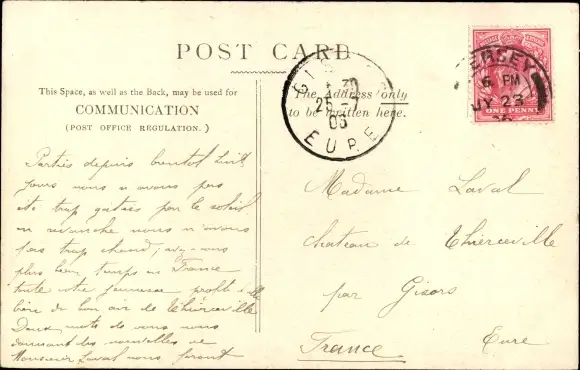 POST CARD
This Space, as well as the Back, may be used for
COMMUNICATION
(POST OFFICE REGULATION.)
The Address only
to be written here.
JERSEY
6 PM
JY 23
ONE PENNY
GI
25-7
06
EURE
Parties depuis bientot huit
jours nous n'avons pas
été trop gatées par le soleil
en revanche nous n'avons
pas trop chaud; avez-vous
plus beau temps en France
toute votre jeunesse profite-t-elle
bien du bon air de Thierceville
Deux mots de vous nous
donnant des nouvelles de
Monsieur Laval nous feront
Madame Laval
chateau de Thierceville
par Gisors
France Eure